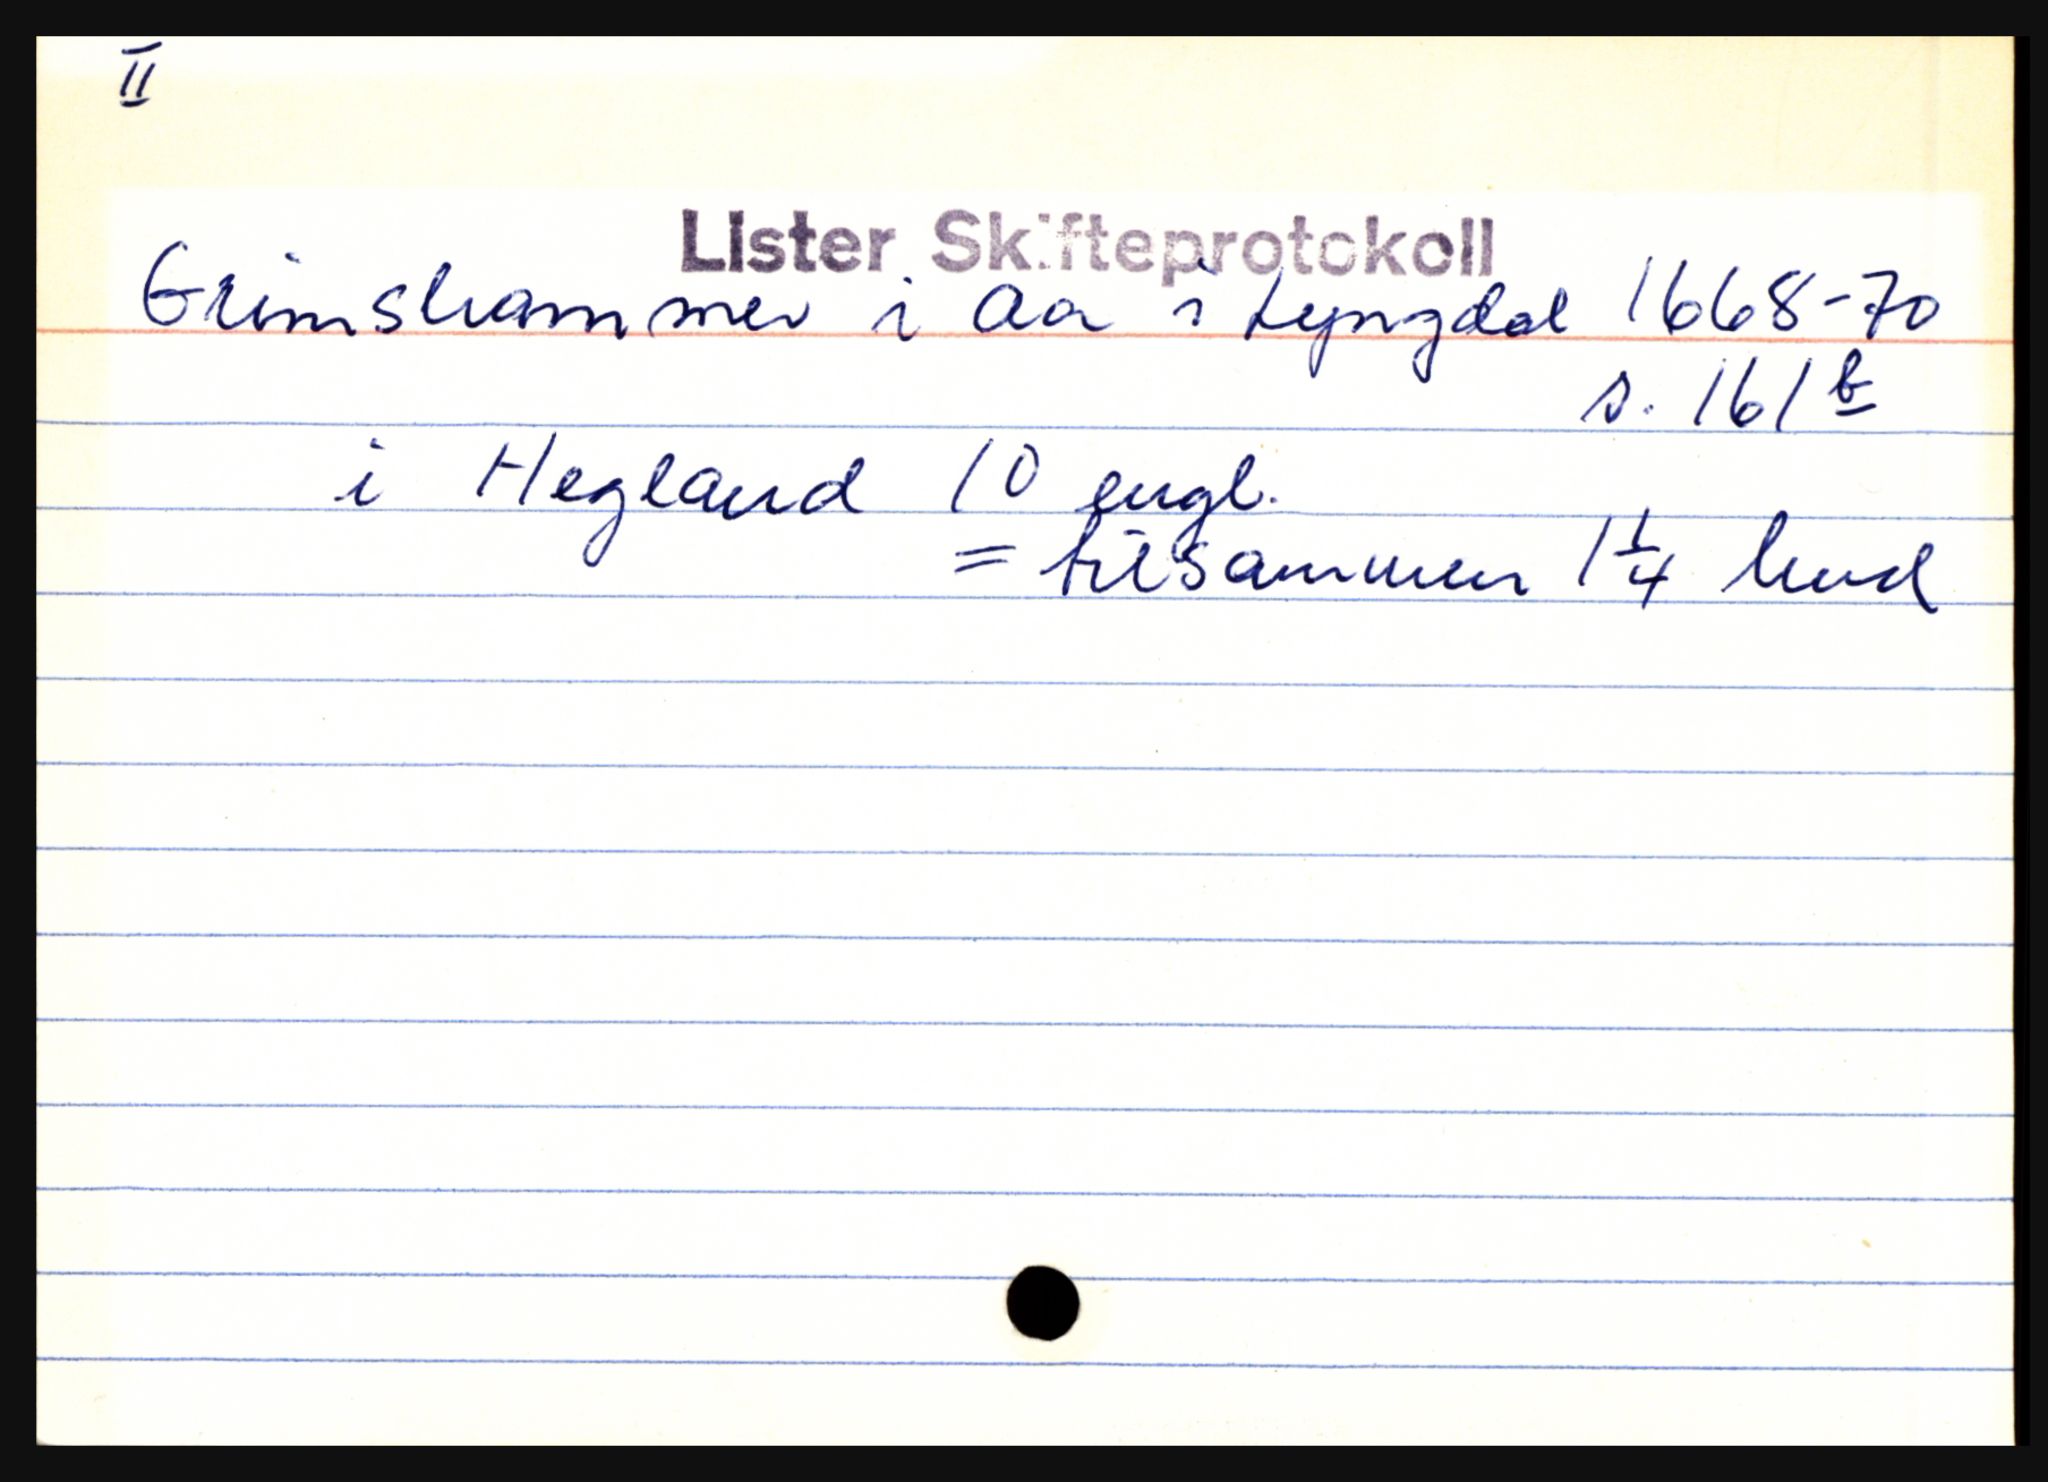 II
Lister Skifteprotokoll
Grimshammer i Aa i Lyngdal 1668-70
s. 161b
i Hegland 10 engl.
= tilsammen 1 1/4 hud